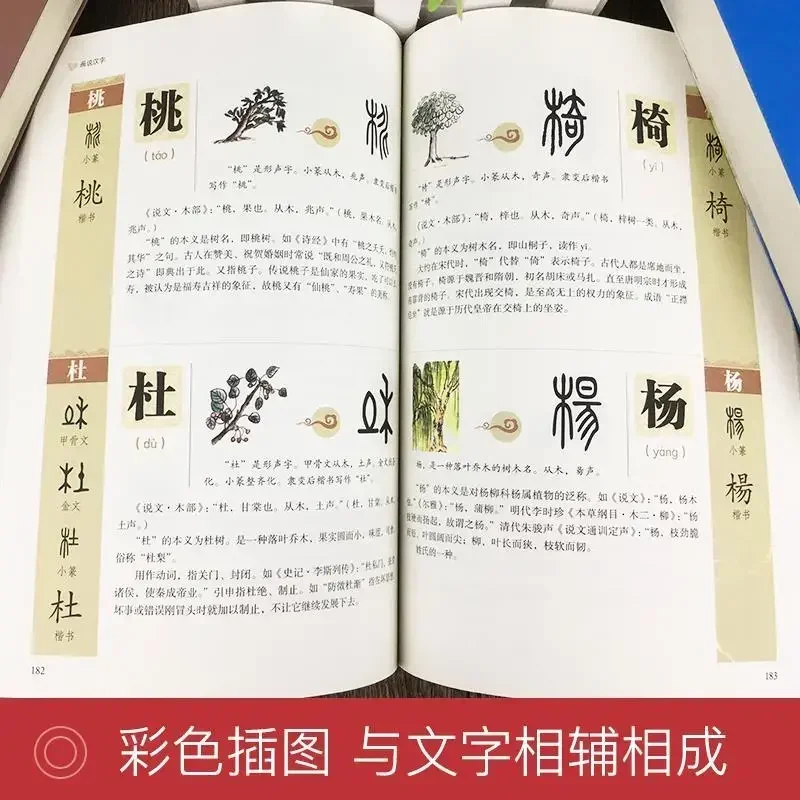 画说汉字
桃
小篆
桃
楷书
桃
(táo)
“桃”是形声字。小篆从木，兆声。隶变后楷书
写作“桃”。
《说文·木部》：“桃，果也。从木，兆声。”（桃，果木名。从木，
兆声。）
“桃”的本义是树名，即桃树。如《诗经》中有“桃之夭夭，灼灼
其华”之句。古人在赞美、祝贺婚姻时常说“既和周公之礼，又
之诗”即典出于此。又指桃子。传说桃子是仙家的果实，吃了可以
寿，被认为是福寿吉祥的象征，故桃又有“仙桃”、“寿果”的美称。
杜
甲骨文
金文
小篆
杜
楷书
杜
(dù)
“杜”是形声字。甲骨文从木，土声。金文
化。小篆整齐化。隶变后楷书写作“杜”。
《说文·木部》：“杜，甘棠也。从木，土声。”（杜，甘棠。从木，
土声。）
“杜”的本义为杜树。是一种落叶乔木，果实圆而小，味涩，可食，
俗称“杜梨”。
用作动词，指关门、封闭。如《史记·李斯列传》：“杜私门，
诸侯，使秦成帝业。”引申指杜绝、制止。如“防微杜渐”指在坏思想、
坏事或错误刚冒头时就加以制止，不让它继续发展下去。
182
椅
(yǐ)
小篆
椅
楷书
“椅”是形声字。小篆从木，奇声。隶变后楷书
写作“椅”。
《说文·木部》：“椅，梓也。从木，奇声。”（椅，梓树一类。从木，
奇声。）
“椅”的本义为树木名，即山桐子，读作 yī。
大约在宋代时，“椅”代替“倚”表示椅子。古代人都是席地而坐，
没有椅子。椅源于魏晋和隋朝，初名胡床或马扎。直至唐明宗时才形成
有靠背的椅子。宋代出现交椅，是至高无上的权力的象征。成语“正襟
危坐”就是源于历代皇帝在交椅上的坐姿。
杨
(yáng)
杨
小篆
楊
楷书
杨，是一种落叶乔木的树木名。从木，昜声。
“杨”的本义是对杨柳科杨属植物的泛称。如《说文》：“杨，杨木
也。”《尔雅》：“杨，蒲柳。”明代李时珍《本草纲目·木二·柳》：“杨
枝硬而扬起，故谓之杨。”清代朱骏声《说文通训定声》：“杨，枝劲脆
而短，叶圆阔而尖；柳，叶长而狭，枝软而韧。
姓氏的一种。
183
彩色插图 与文字相辅相成